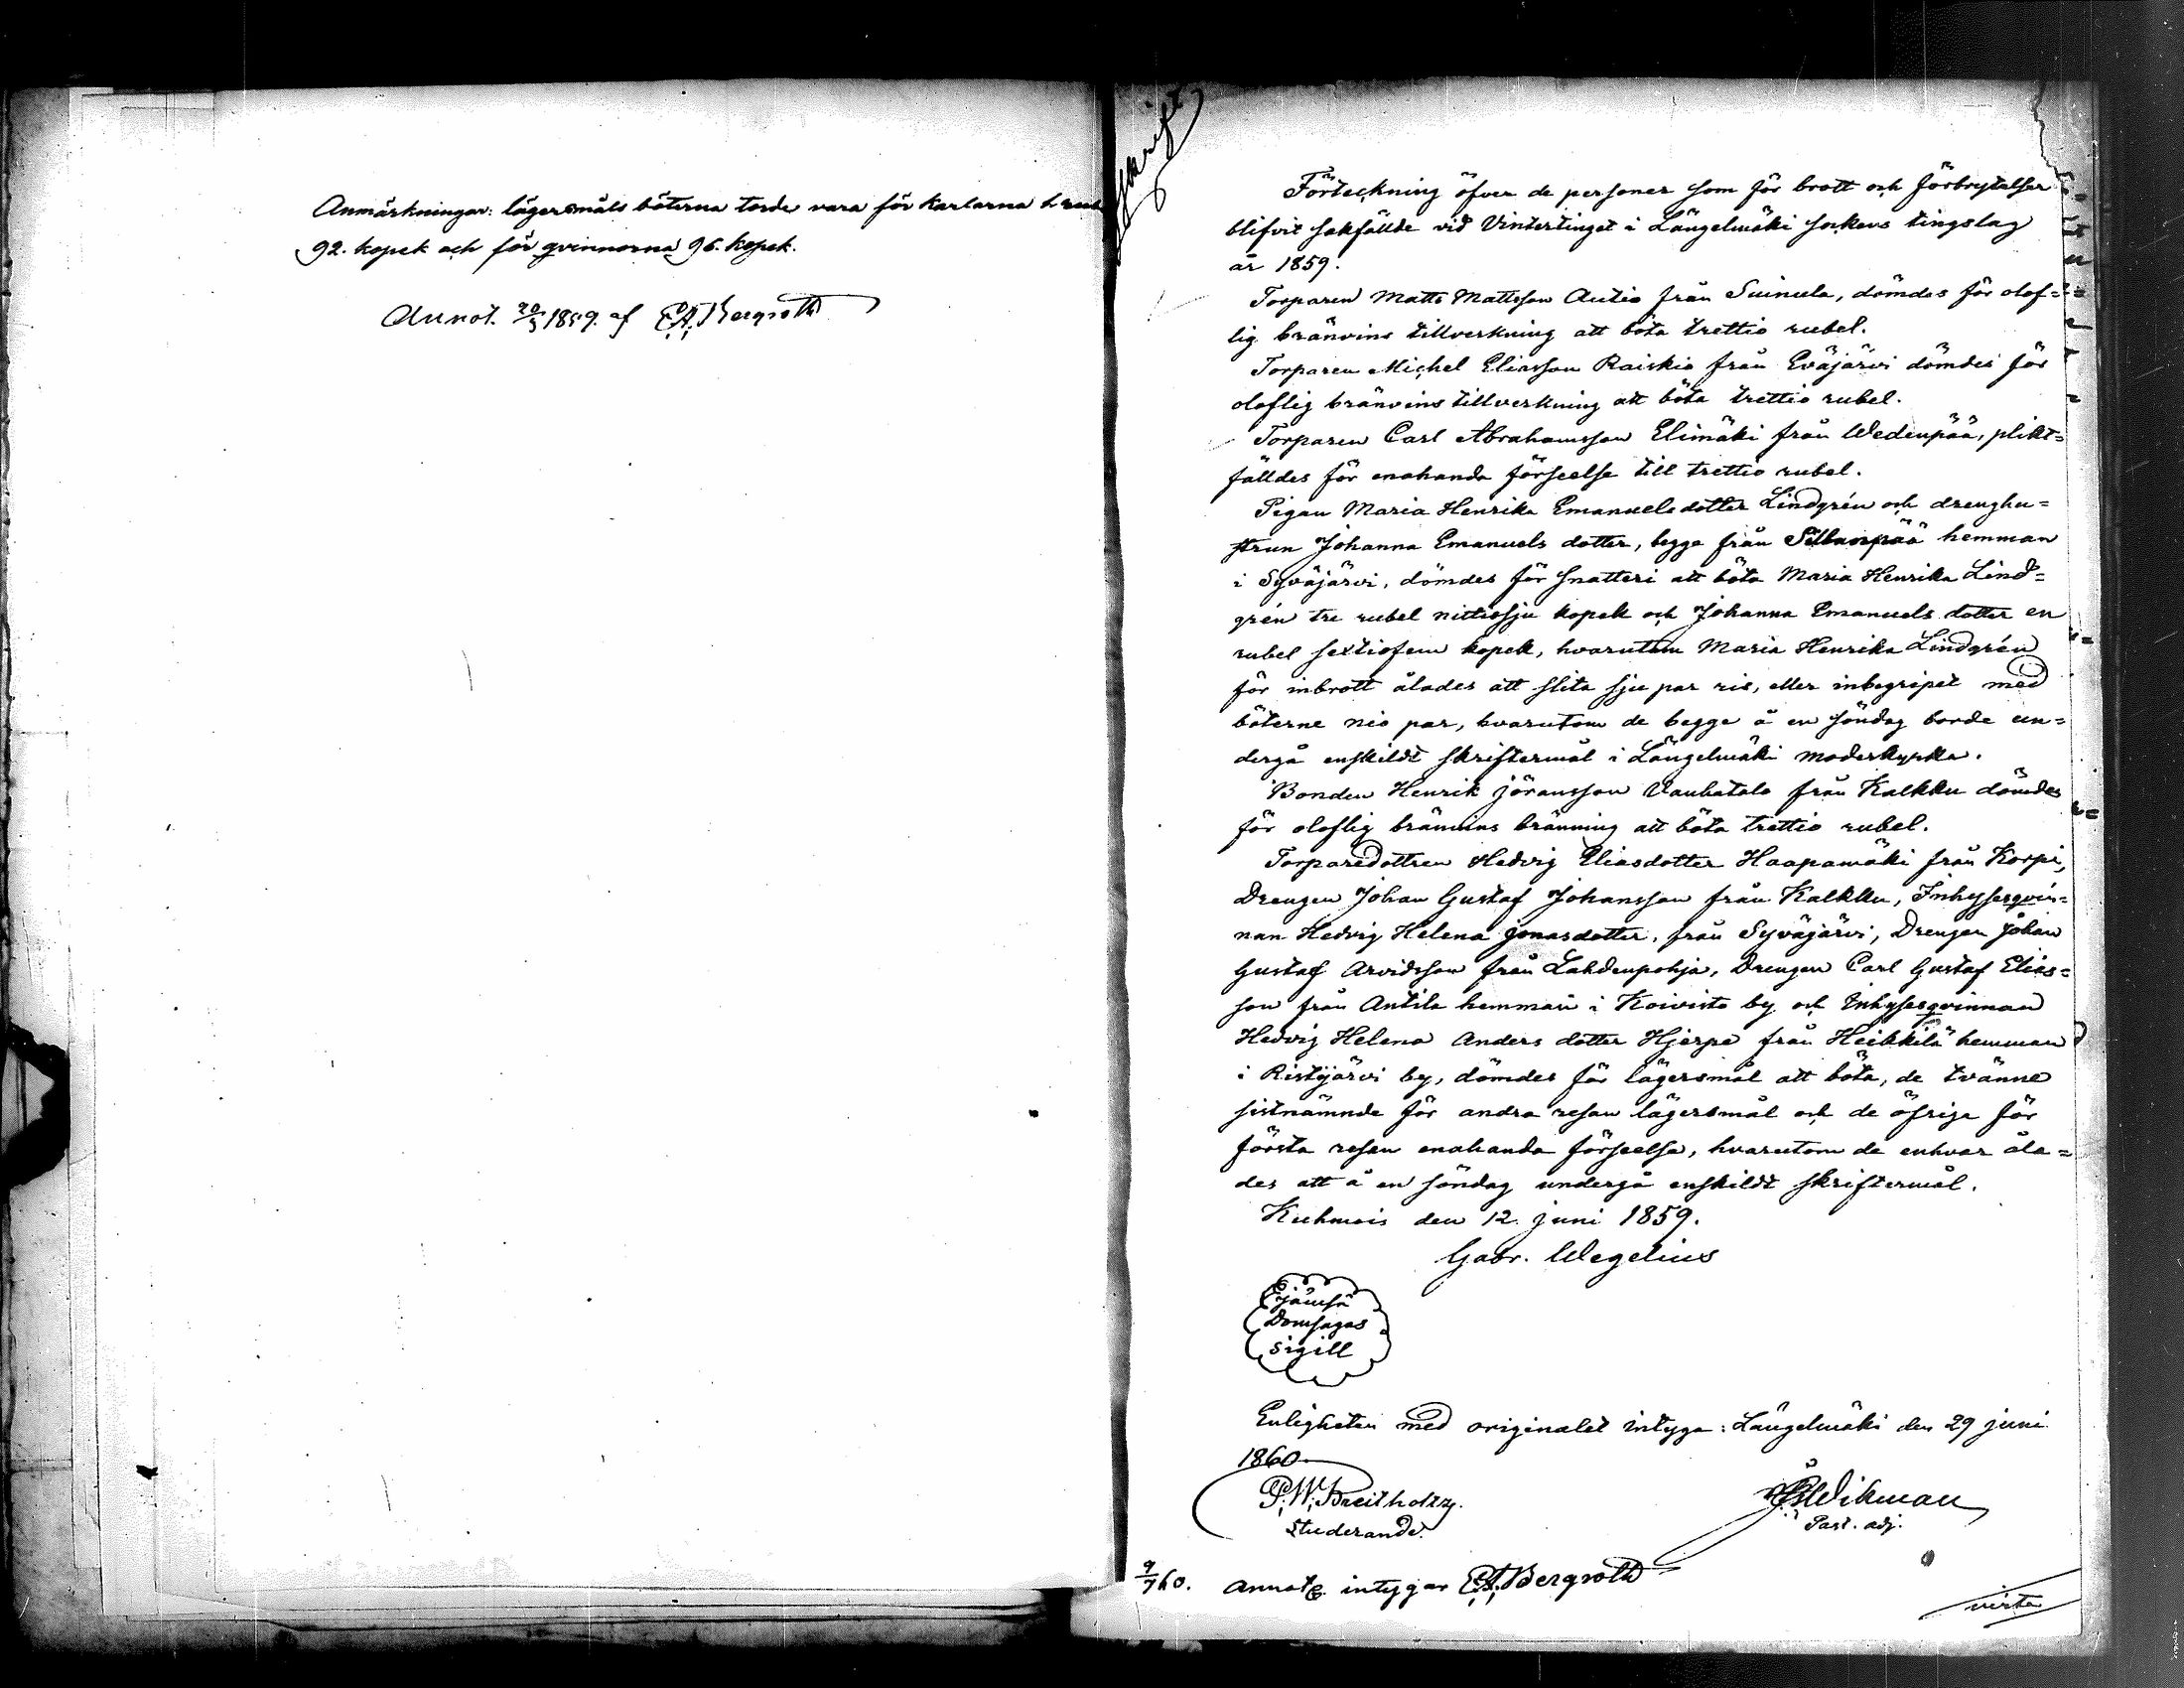 Anmärkningar: lägersmåls böterna torde vara för karlarna 1 rub
92. kopek och för qvinnorna 96. kopek.
Annot. 20/3 1859. af E.A. Bergroth
Afskrift
Förteckning öfver de personer som för brott och förbrytelser
blifvit sakfällde vid Vintertinget i Längelmäki sockens tingslag
år 1859.
Torparen Matts Mattsson Autio från Suinula, dömdes för olof=
lig bränvins tillverkning att böta trettio rubel.
Torparen Michel Eliasson Raiskio från Eväjärvi dömdes för
oloflig bränvins tillverkning att böta trettio rubel.
Torparen Carl Abrahamsson Elimäki från Wedenpää, plikt=
fälldes för enahanda förseelse till trettio rubel.
Pigan Maria Henrika Emanuelsdotter Lindgrén och drenghu=
strun Johanna Emanuels dotter, begge från Sillanpää hemman
i Syväjärvi, dömdes för snatteri att böta Maria Henrika Lind=
grén tre rubel nittiosju kopek och Johanna Emanuels dotter en
rubel sextiofem kopek, hvarutom Maria Henrika Lindgrén
för inbrott ålades att slita sju par ris, eller inbegripet med
böterne nio par, hvarutom de begge å en söndag borde un=
dergå enskildt skriftermål i Längelmäki moderkyrka.
Bonden Henrik Jöransson Vanhatalo från Kalkku dömdes
för oloflig bränvins bränning att böta trettio rubel.
Torparedottren Hedvig Eliasdotter Haapamäki från Korpi,
Drengen Johan Gustaf Johansson från Kalkku, Inhysesqvin=
nan Hedvig Helena Jonasdotter, från Syväjärvi, Drengen Johan
Gustaf Arvidsson från Lahdenpohja, Drengen Carl Gustaf Elias=
son från Antila hemman i Koivisto by och Inhysesqvinnan
Hedvig Helena Anders dotter Hjerpe från Heikkilä hemman
i Ristijärvi by, dömdes för lägersmål att böta, de tvänne
sistnämnde för andra resan lägersmål och de öfrige för
första resan enahanda förseelse, hvarutom de enhvar åla=
des att å en söndag undergå enskildt skriftermål.
Kuhmois den 12. juni 1859.
Gabr. Wegelius
Jämsä
Domsagas
sigill
Enligheten med originalet intyga: Längelmäki den 29 juni
1860.
P.W. Breitholtz.
Studerande.
Wikman
Past. adj.
9/7 60. Annot. intygar E.A. Bergroth
verte